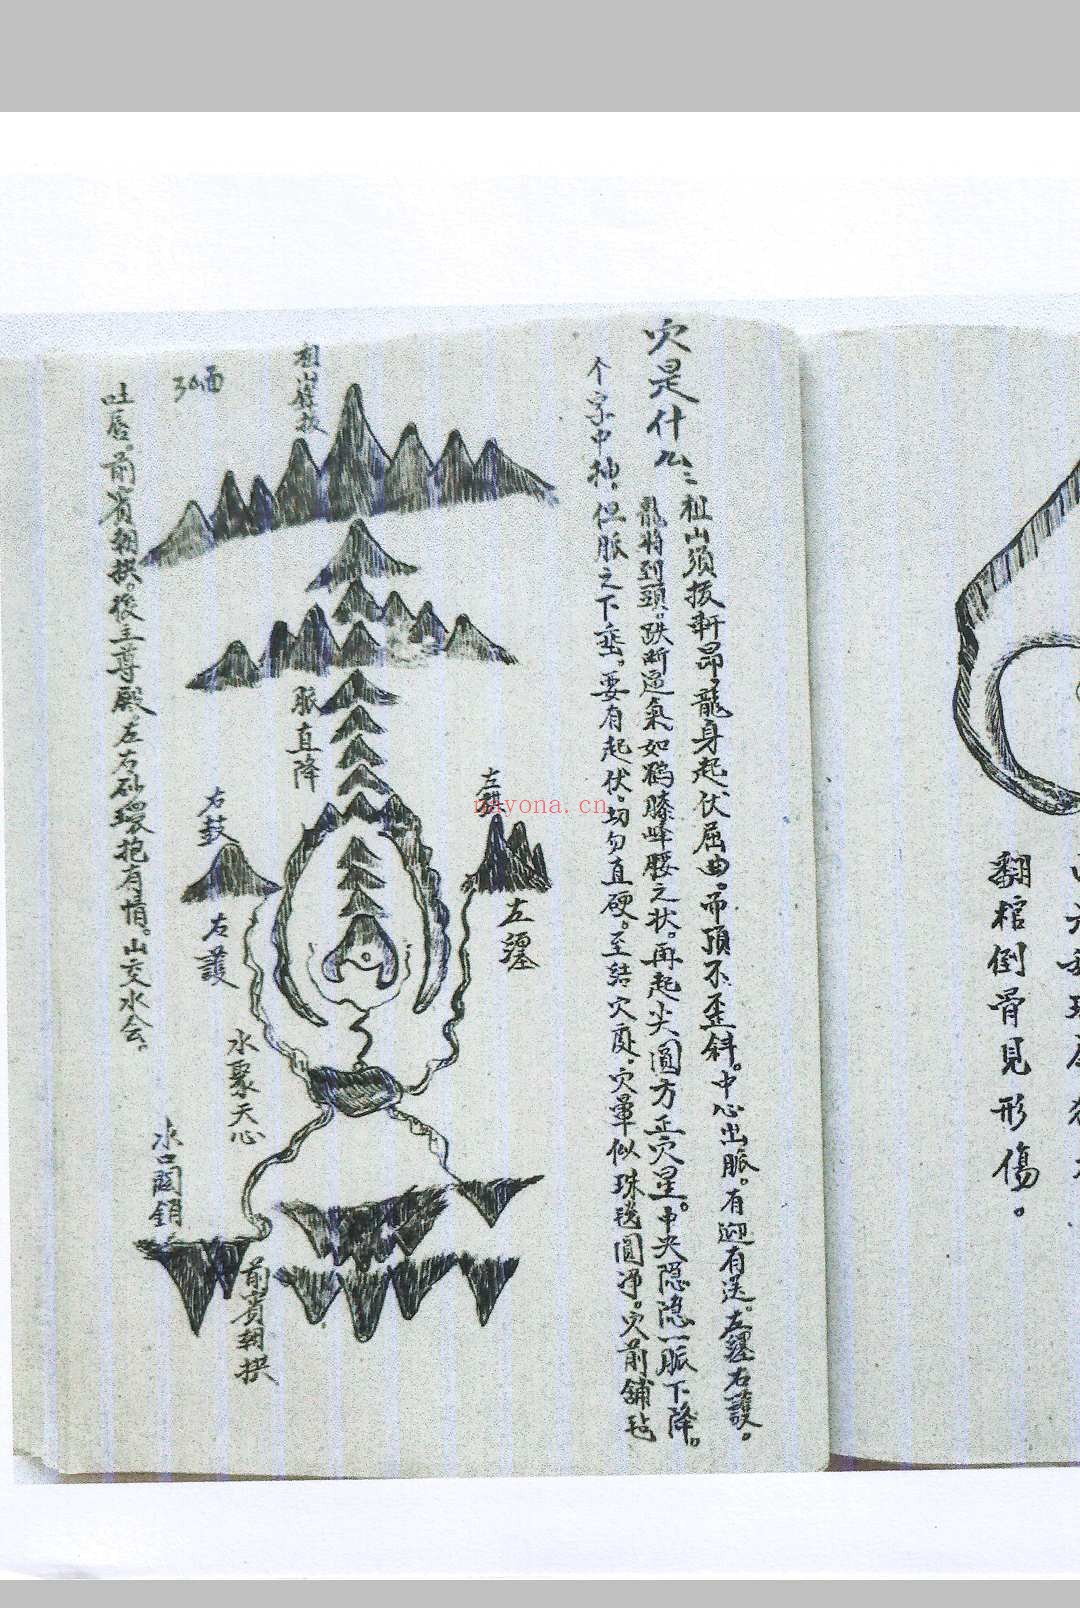 翻棺倒骨見形傷。
穴是什么：祖山须拔軒昂，龍身起伏屈曲，帀頂不歪斜。中心出脈。有迎有送。左纒右護。
龍將到頭。跌断過氣如鹤膝峰腰之状。再起尖圓方正穴星。中央隐隐一脈下降。
个字中抽。但脈之下垂。要有起伏。切勿直硬。至結穴處。穴暈似珠毬圓净。穴前舖毡
吐唇。前賓朝拱。後主尊嚴。左右砂環抱有情。山交水会。
祖山聳拔
脈直降
右鼓
右護
左纒
水聚天心
水口関鎖
前賓朝拱
nayona.cn